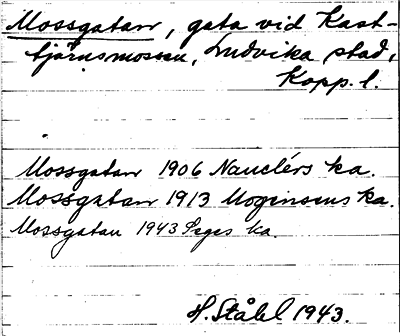 Mossgatan, gata vid Kast-
tjärnsmossen, Ludvika stad,
Kopp. l.
Mossgatan 1906 Nauclérs ka.
Mossgatan 1913 Moginsens ka.
Mossgatan 1943 Sages ka.
H. Ståhl 1943.